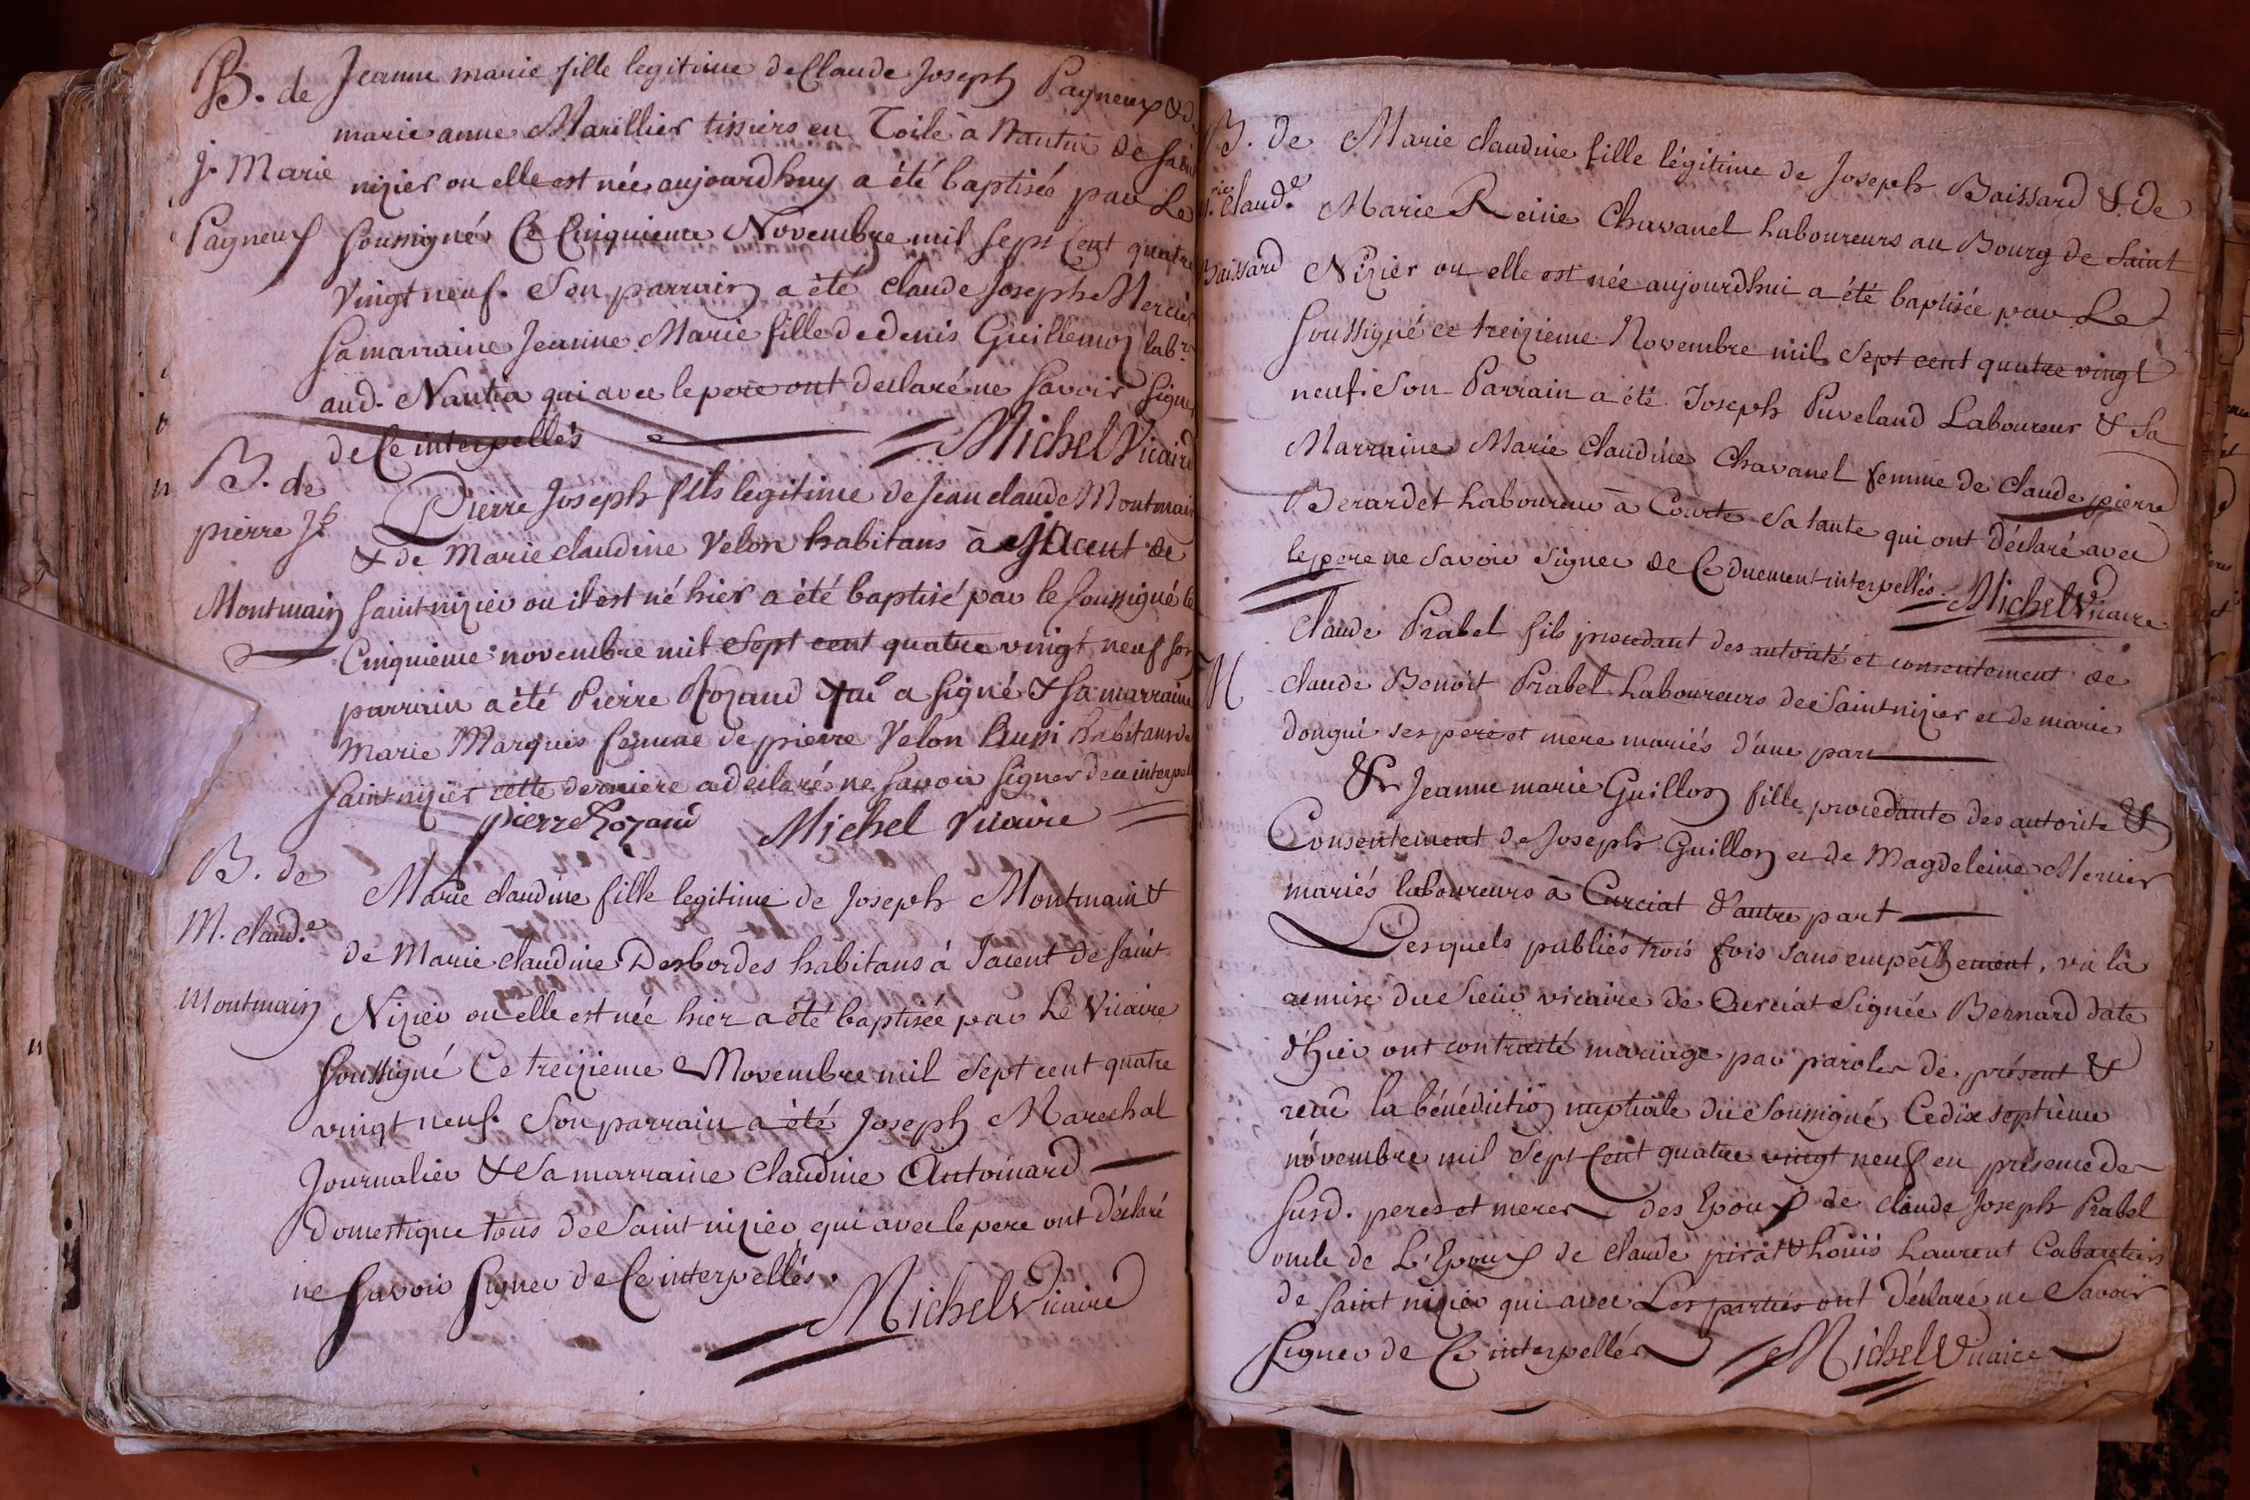 B. de
J. Marie
Pagneux
Jeanne marie fille legitime de Claude Joseph Pagneux & d.
marie anne Marillier tissiers en Toile à Nantua de saint
nizier ou elle est née aujourdhuy a été baptisée par Le
soussigné Ce Cinquieme Novembre mil sept cent quatre
vingt neuf. Son parrain a été claude Joseph Mercier
sa marraine Jeanne Marie fille de denis Guillemoz lab.r
aud. Nantua qui avec le pere ont déclaré ne savoir signer
de Ce interpellés
Michel Vicaire
B. de
pierre Jh
Montmain
Pierre Joseph fils legitime de Jean claude Montmain
& de Marie claudine Velon habitans à Jacent de
saint nizier ou il est né hier a été baptisé par le soussigné le
Cinquieme novembre mil sept cent quatre vingt neuf son
parrain a été Pierre Rozand qui a signé & sa marraine
Marie Marques femme de pierre Velon aussi habitans de
saint nizier cette derniere a declaré ne savoir signer de ce interpel
pierre Rozand Michel Vicaire
B. de
M. claud.e
Montmain
Marie claudine fille legitime de Joseph Montmain &
de Marie claudine Desbordes habitans à Jacent de saint
Nizier ou elle est née hier a été baptisée par Le Vicaire
soussigné Ce treizieme Novembre mil sept cent quatre
vingt neuf. Son parrain a été Joseph Marechal
Journalier & sa marraine claudine Antoinard
domestique tous de saint nizier qui avec le pere ont déclaré
ne savoir signer de Ce interpellés.
Michel Vicaire
B. de
M.rie claud.e
Baissard
Marie claudine fille légitime de Joseph Baissard & de
Marie Reine Chavanel Laboureurs au Bourg de saint
Nizier ou elle est née aujourdhui a été baptisée par Le
soussigné ce treizieme Novembre mil sept cent quatre vingt
neuf. Son Parrain a été Joseph Puveland Laboureur & sa
Marraine Marie Claudine Chavanel femme de claude pierre
Berardet Laboureur à Courte sa tante qui ont déclaré avec
le pere ne savoir signer de Ce duement interpellés. Michel Vicaire
M
Claude Prabel fils procedant des autorité et consentement de
claude Benoit Prabel Laboureurs de saint nizier et de marie
dongui ses pere et mere mariés d'une part
& Jeanne marie Guillon fille procedante des autorite &
Consentement de Joseph Guillon et de Magdeleine Mercier
mariés laboureurs à Curciat d'autre part
Lesquels publiés trois fois sans empêchement, vu la
remise du sieur vicaire de Curciat signée Bernard date
d'hier ont contracté mariage par paroles de présent &
recu la bénédiction nuptiale du soussigné Ce dix septième
novembre mil sept cent quatre vingt neuf en présence de
susd. peres et meres des Epoux de claude Joseph Prabel
oncle de L'Epoux de claude pirat & Louis Laurent Cabaretiers
de saint nizier qui avec Les parties ont déclaré ne savoir
signer de Ce interpellés Michel Vicaire